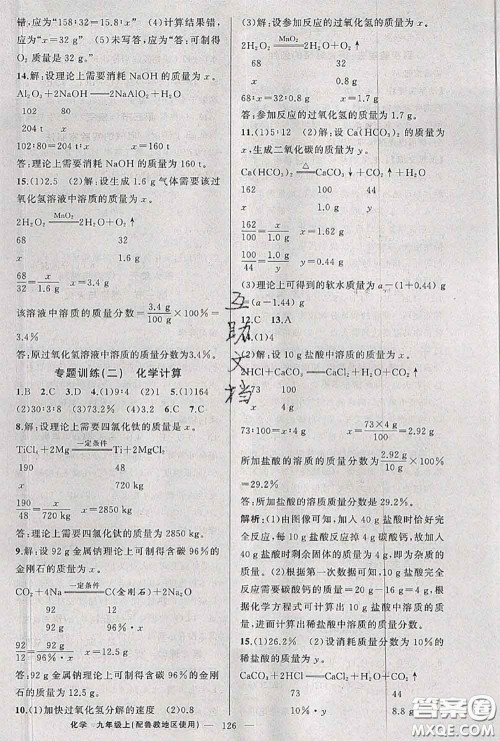 错,应为“158∶32=15.8∶x” (4)计算结果错,
应为“x=32 g” (5)未写答,应为“答:可制得
O₂ 质量为 32 g。”
14.解:设理论上需要消耗 NaOH 的质量为 x。
Al₂O₃+2NaOH══2NaAlO₂+H₂O
102 80
204 t x
102∶80=204 t∶x x=160 t
答:理论上需要消耗 NaOH 的质量为 160 t。
15.(1)2.5 (2)解:设生成 1.6 g 气体需要该过
氧化氢溶液中溶质的质量为 x。
2H₂O₂ ══MnO₂══ 2H₂O+O₂↑
68 32
x 1.6 g
68/32=x/1.6 g x=3.4 g
该溶液中溶质的质量分数=3.4 g/100 g×100%=
3.4%
答:原过氧化氢溶液中溶质的质量分数为3.4%。
专题训练(二) 化学计算
1.B 2.C 3.C 4.(1)9∶4 (2)1 5.(1)164
(2)30∶3∶8 (3)73.2% 6.C 7.C
8.解:设理论上需要四氯化钛的质量为 x。
TiCl₄+2Mg ══一定条件══ Ti+2MgCl₂
190 48
x 720 kg
190/48=x/720 kg x=2850 kg
答:理论上需要四氯化钛的质量为 2850 kg。
9.解:设 92 g 金属钠理论上可制得含碳 96%的
金刚石的质量为 x。
CO₂+4Na ══一定条件══ C(金刚石)+2Na₂O
92 12
92 g 96%·x
92/12=92 g/96%·x x=12.5 g
答:92 g 金属钠理论上可制得含碳 96%的金刚
石的质量为 12.5 g。
10.(1)加快过氧化氢分解的速度 (2)0.8
(3)解:设参加反应的过氧化氢的质量为 x。
2H₂O₂ ══MnO₂══ 2H₂O+O₂↑
68 32
x 0.8 g
68∶x=32∶0.8 g x=1.7 g
答:参加反应的过氧化氢的质量为 1.7 g。
11.(1)5∶12 (2)解:设 Ca(HCO₃)₂ 的质量为
x,生成二氧化碳的质量为 y。
Ca(HCO₃)₂ ══△══ CaCO₃↓+CO₂↑+H₂O
162 100 44
x 1.0 g y
162/100=x/1.0 g
100/44=1.0 g/y
(3)理论上可得到的软水质量为 a-(1+0.44) g
=(a-1.44) g
12.C 13.A
14.(1)4
(2)解:设 10 g 盐酸中溶质的质量为 x。
2HCl+CaCO₃══CaCl₂+H₂O+CO₂↑
73 100
x 4 g
73∶100=x∶4 g x=73×4 g/100=2.92 g
所加盐酸的溶质的质量分数为2.92 g/10 g×100%
=29.2%
答:所加盐酸的溶质质量分数是 29.2%。
解析:(1)由图像可知,加入 40 g 盐酸时恰好完
全反应,每 10 g 盐酸反应 4 g 碳酸钙,故加入
40 g 盐酸时剩余固体的质量为 4 g,即杂质的质
量。(2)根据第一次数据,可知 10 g 盐酸完全反
应,消耗碳酸钙的质量=20 g-16 g=4 g,根据
化学方程式可计算出 10 g 盐酸中溶质的质
量,进而计算出稀盐酸中溶质的质量分数。
15.(1)26.2% (2)解:设消耗质量分数为
化学 九年级上(配鲁教地区使用) — 126 —
互助文档